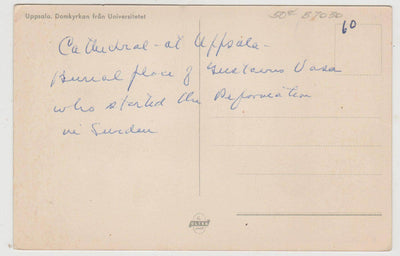 Uppsala. Domkyrkan från Universitetet
50¢ B7050
60
Cathedral - at Uppsala -
Burial place of Gustavus Vasa
who started the Reformation
in Sweden
ULTRA